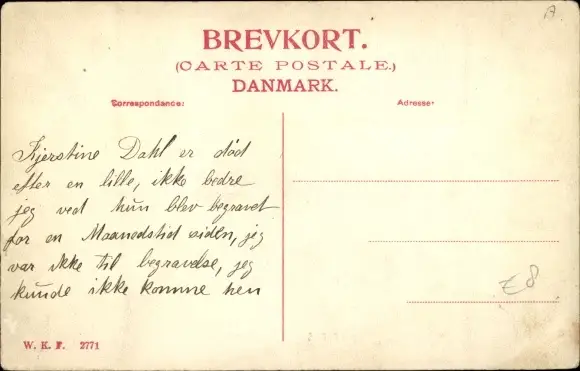 BREVKORT.
(CARTE POSTALE.)
DANMARK.
Correspondance:
Adresse:
Kjerstine Dahl er död
efter en lille, ikke bedre
jeg ved hun blev begravet
for en Maanedstid siden, jeg
var ikke til begravelse, jeg
kunde ikke komme hen
£8
W. K. F. 2771